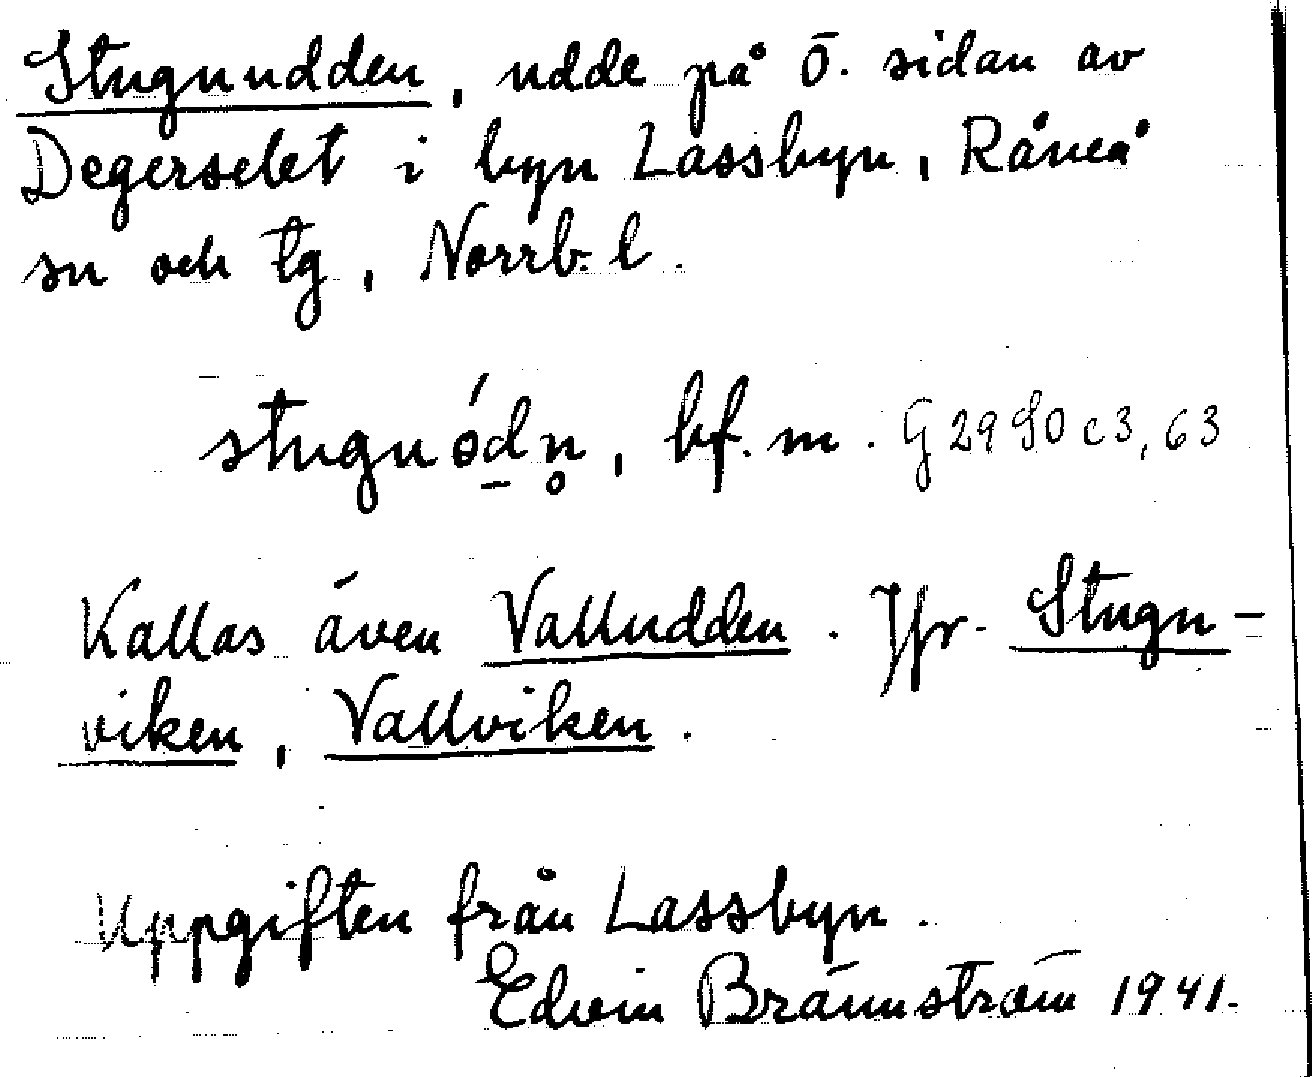 Stugnudden, udde på ö. sidan av
Degerselet i byn Lassbyn, Råneå
sn och tg, Norrb. l.
stugnód̠n̥, bf. m. G 2980 c3, 63
Kallas även Valludden. Jfr. Stugn-
viken, Vallviken.
Uppgiften från Lassbyn.
Edvin Brännström 1941.